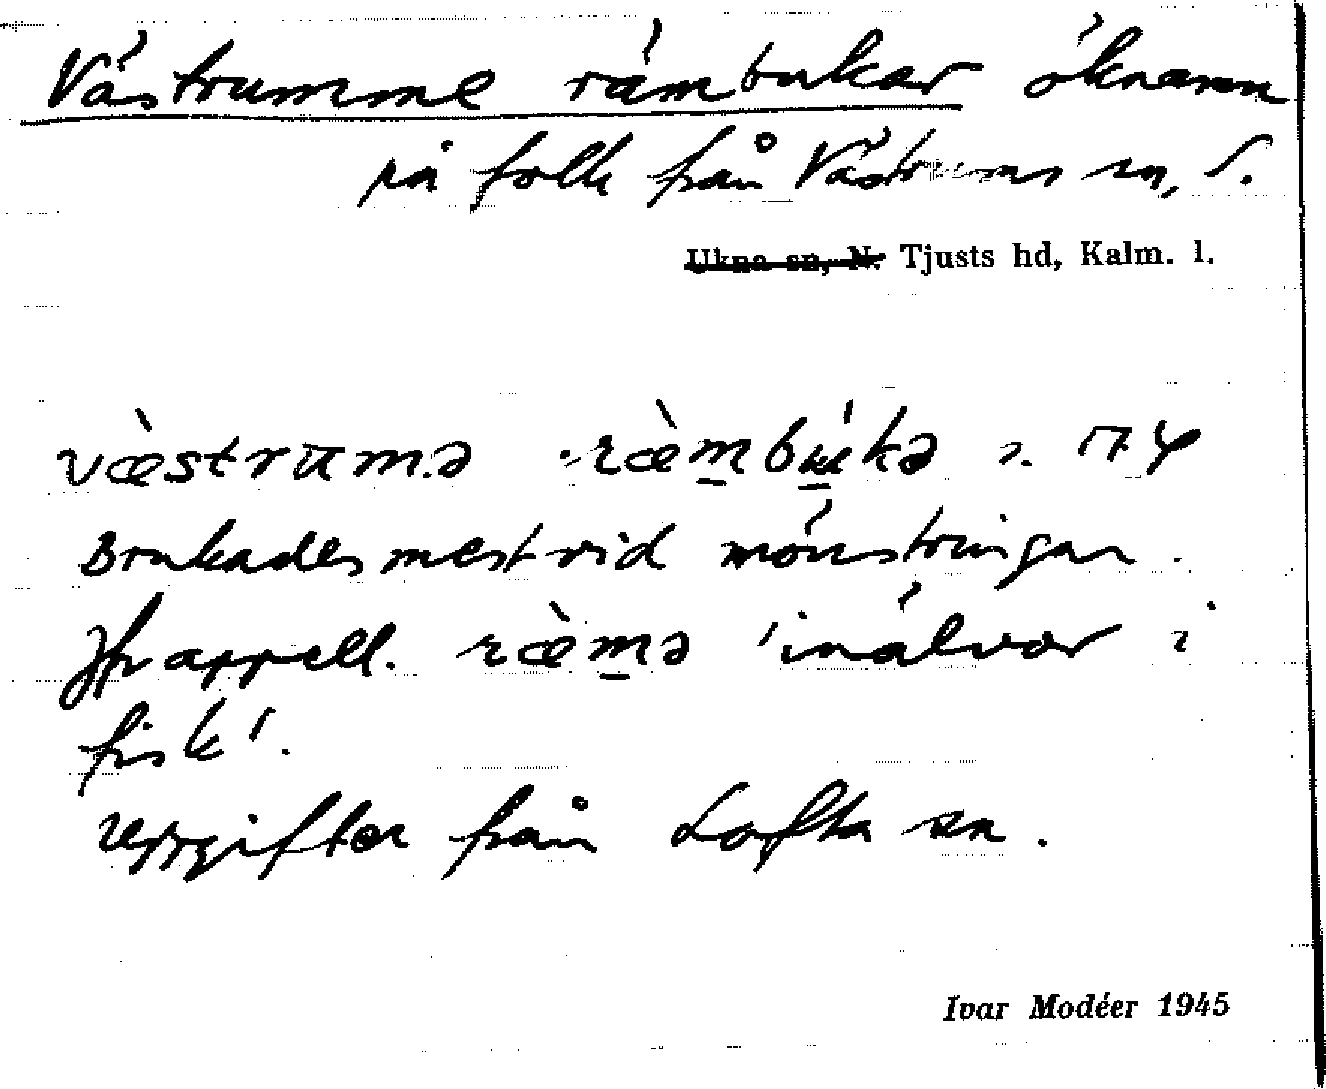 Västrumme rämbukar öknamn
på folk från Västrums sn, S.
Ukna sn, N. Tjusts hd, Kalm. l.
væ̀strumə ræ̀mbúkə
Brukades mest vid mönstringar.
Jfr appell. ræ̀mə 'inälvor i
fisk'.
Uppgifter från Lofta sn.
Ivar Modéer 1945